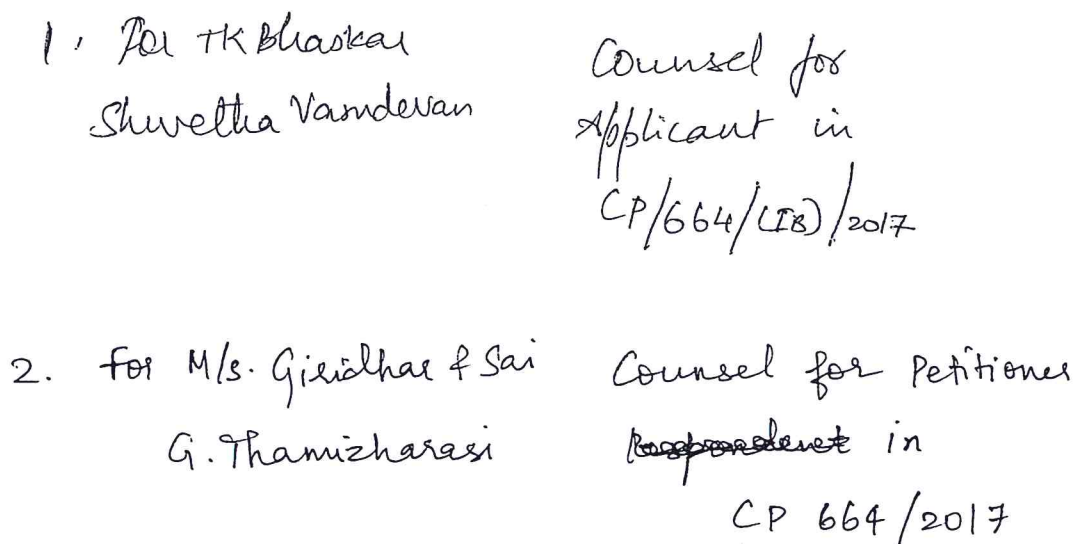 1. For TK Bhaskar
Shwetha Vasudevan
Counsel for
Applicant in
CP/664/(IB)/2017
2. For M/s. Giridhar & Sai
G. Thamizharasi
Counsel for Petitioner
Respondent in
CP 664/2017